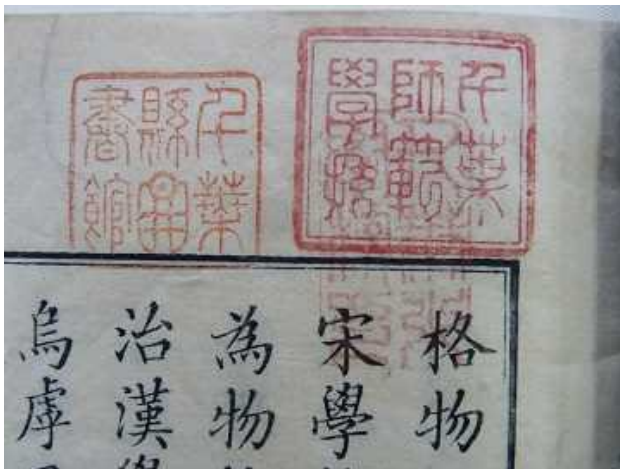 千葉
師範
學校
千葉
縣圖
書館
格物
宋學
為物
治漢
烏虖